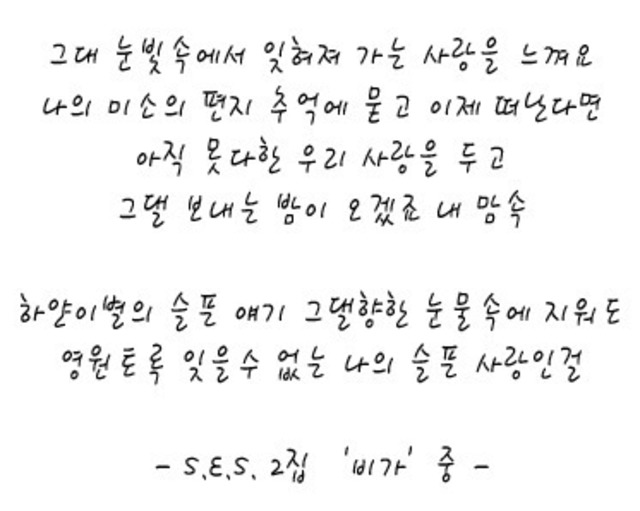 그대 눈빛속에서 잊혀져 가는 사랑을 느껴요
나의 미소의 편지 추억에 묻고 이제 떠난다면
아직 못다한 우리 사랑을 두고
그댈 보내는 밤이 오겠죠 내 맘속
하얀이별의 슬픈 얘기 그댈향한 눈물속에 지워도
영원토록 잊을수 없는 나의 슬픈 사랑인걸
- S.E.S. 2집 '비가' 중 -